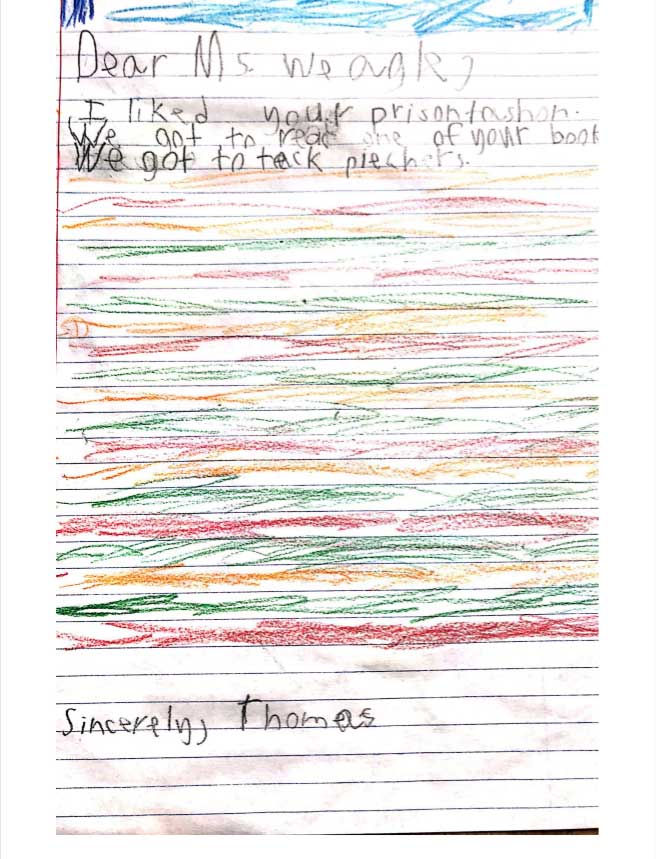 Dear Ms. Weagley
I liked your prisontashon.
We got to read one of your book
We got to teck piechers.
Sincerely, Thomas